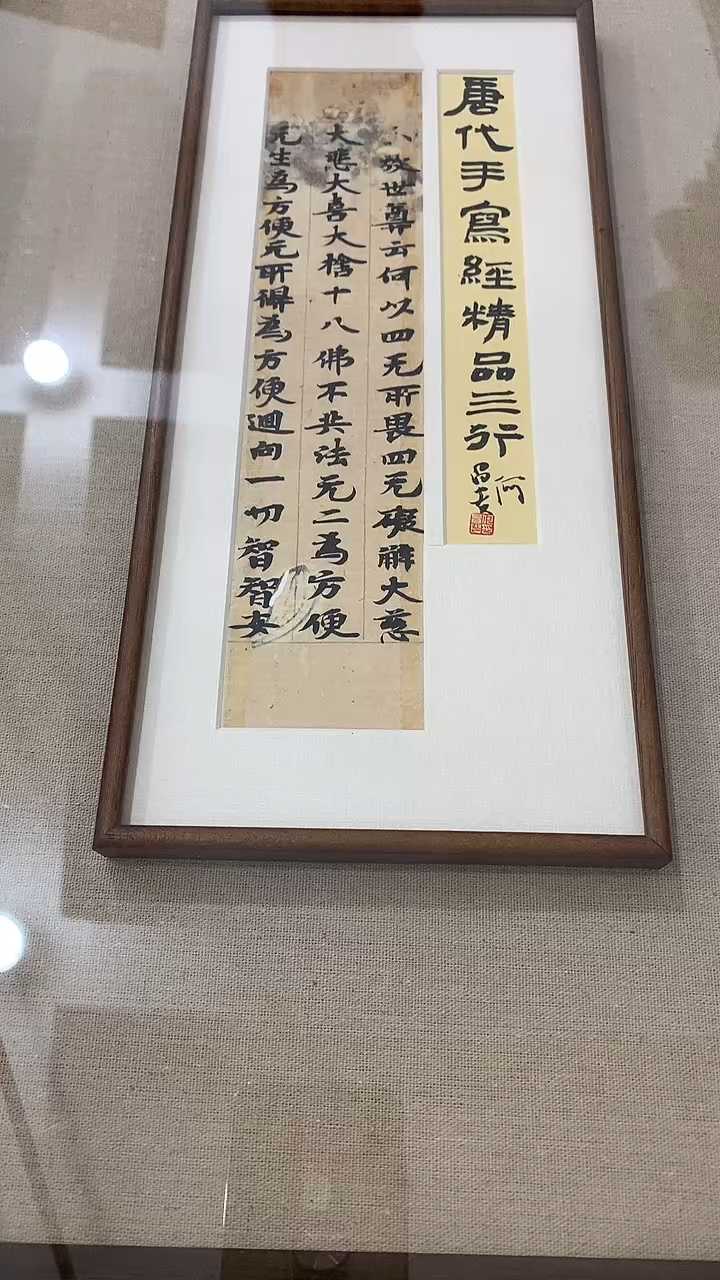 唐代手寫經精品三行
何昌
敬世尊云何以四无所畏四无礙解大慈
大悲大喜大捨十八佛不共法无二為方便
无生為方便无所得為方便迴向一切智智安